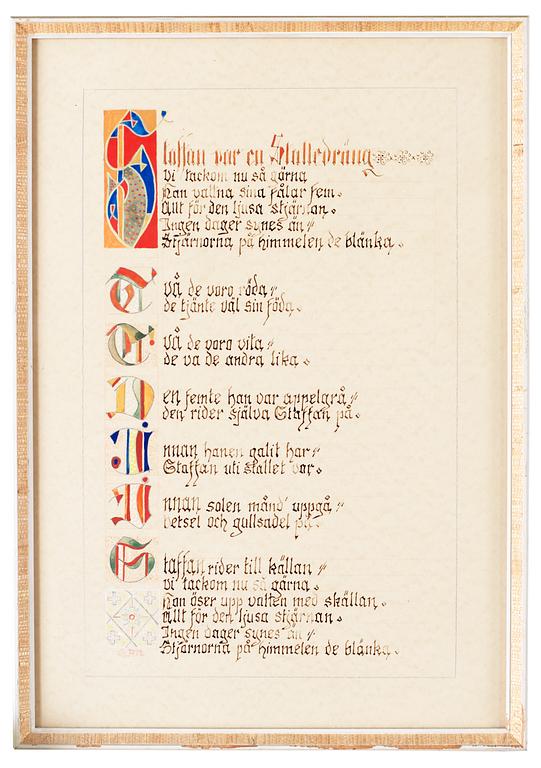 Staffan var en Stalledräng
Vi tackom nu så gärna
Han vattna sina fålar fem.
Allt för den ljusa stjärnan.
Ingen dager synes än //
Stjärnorna på himmelen de blänka.
Två de voro röda //
de tjänte väl sin föda.
Två de voro vita //
de va de andra lika.
Den femte han var appelgrå //
den rider själva Staffan på.
Innan hanen galit har //
Staffan uti stallet var.
Innan solen månd' uppgå //
betsel och gullsadel på.
Staffan rider till källan //
Vi tackom nu så gärna.
Han öser upp vatten med skällan.
Allt för den ljusa stjärnan.
Ingen dager synes än //
Stjärnorna på himmelen de blänka.